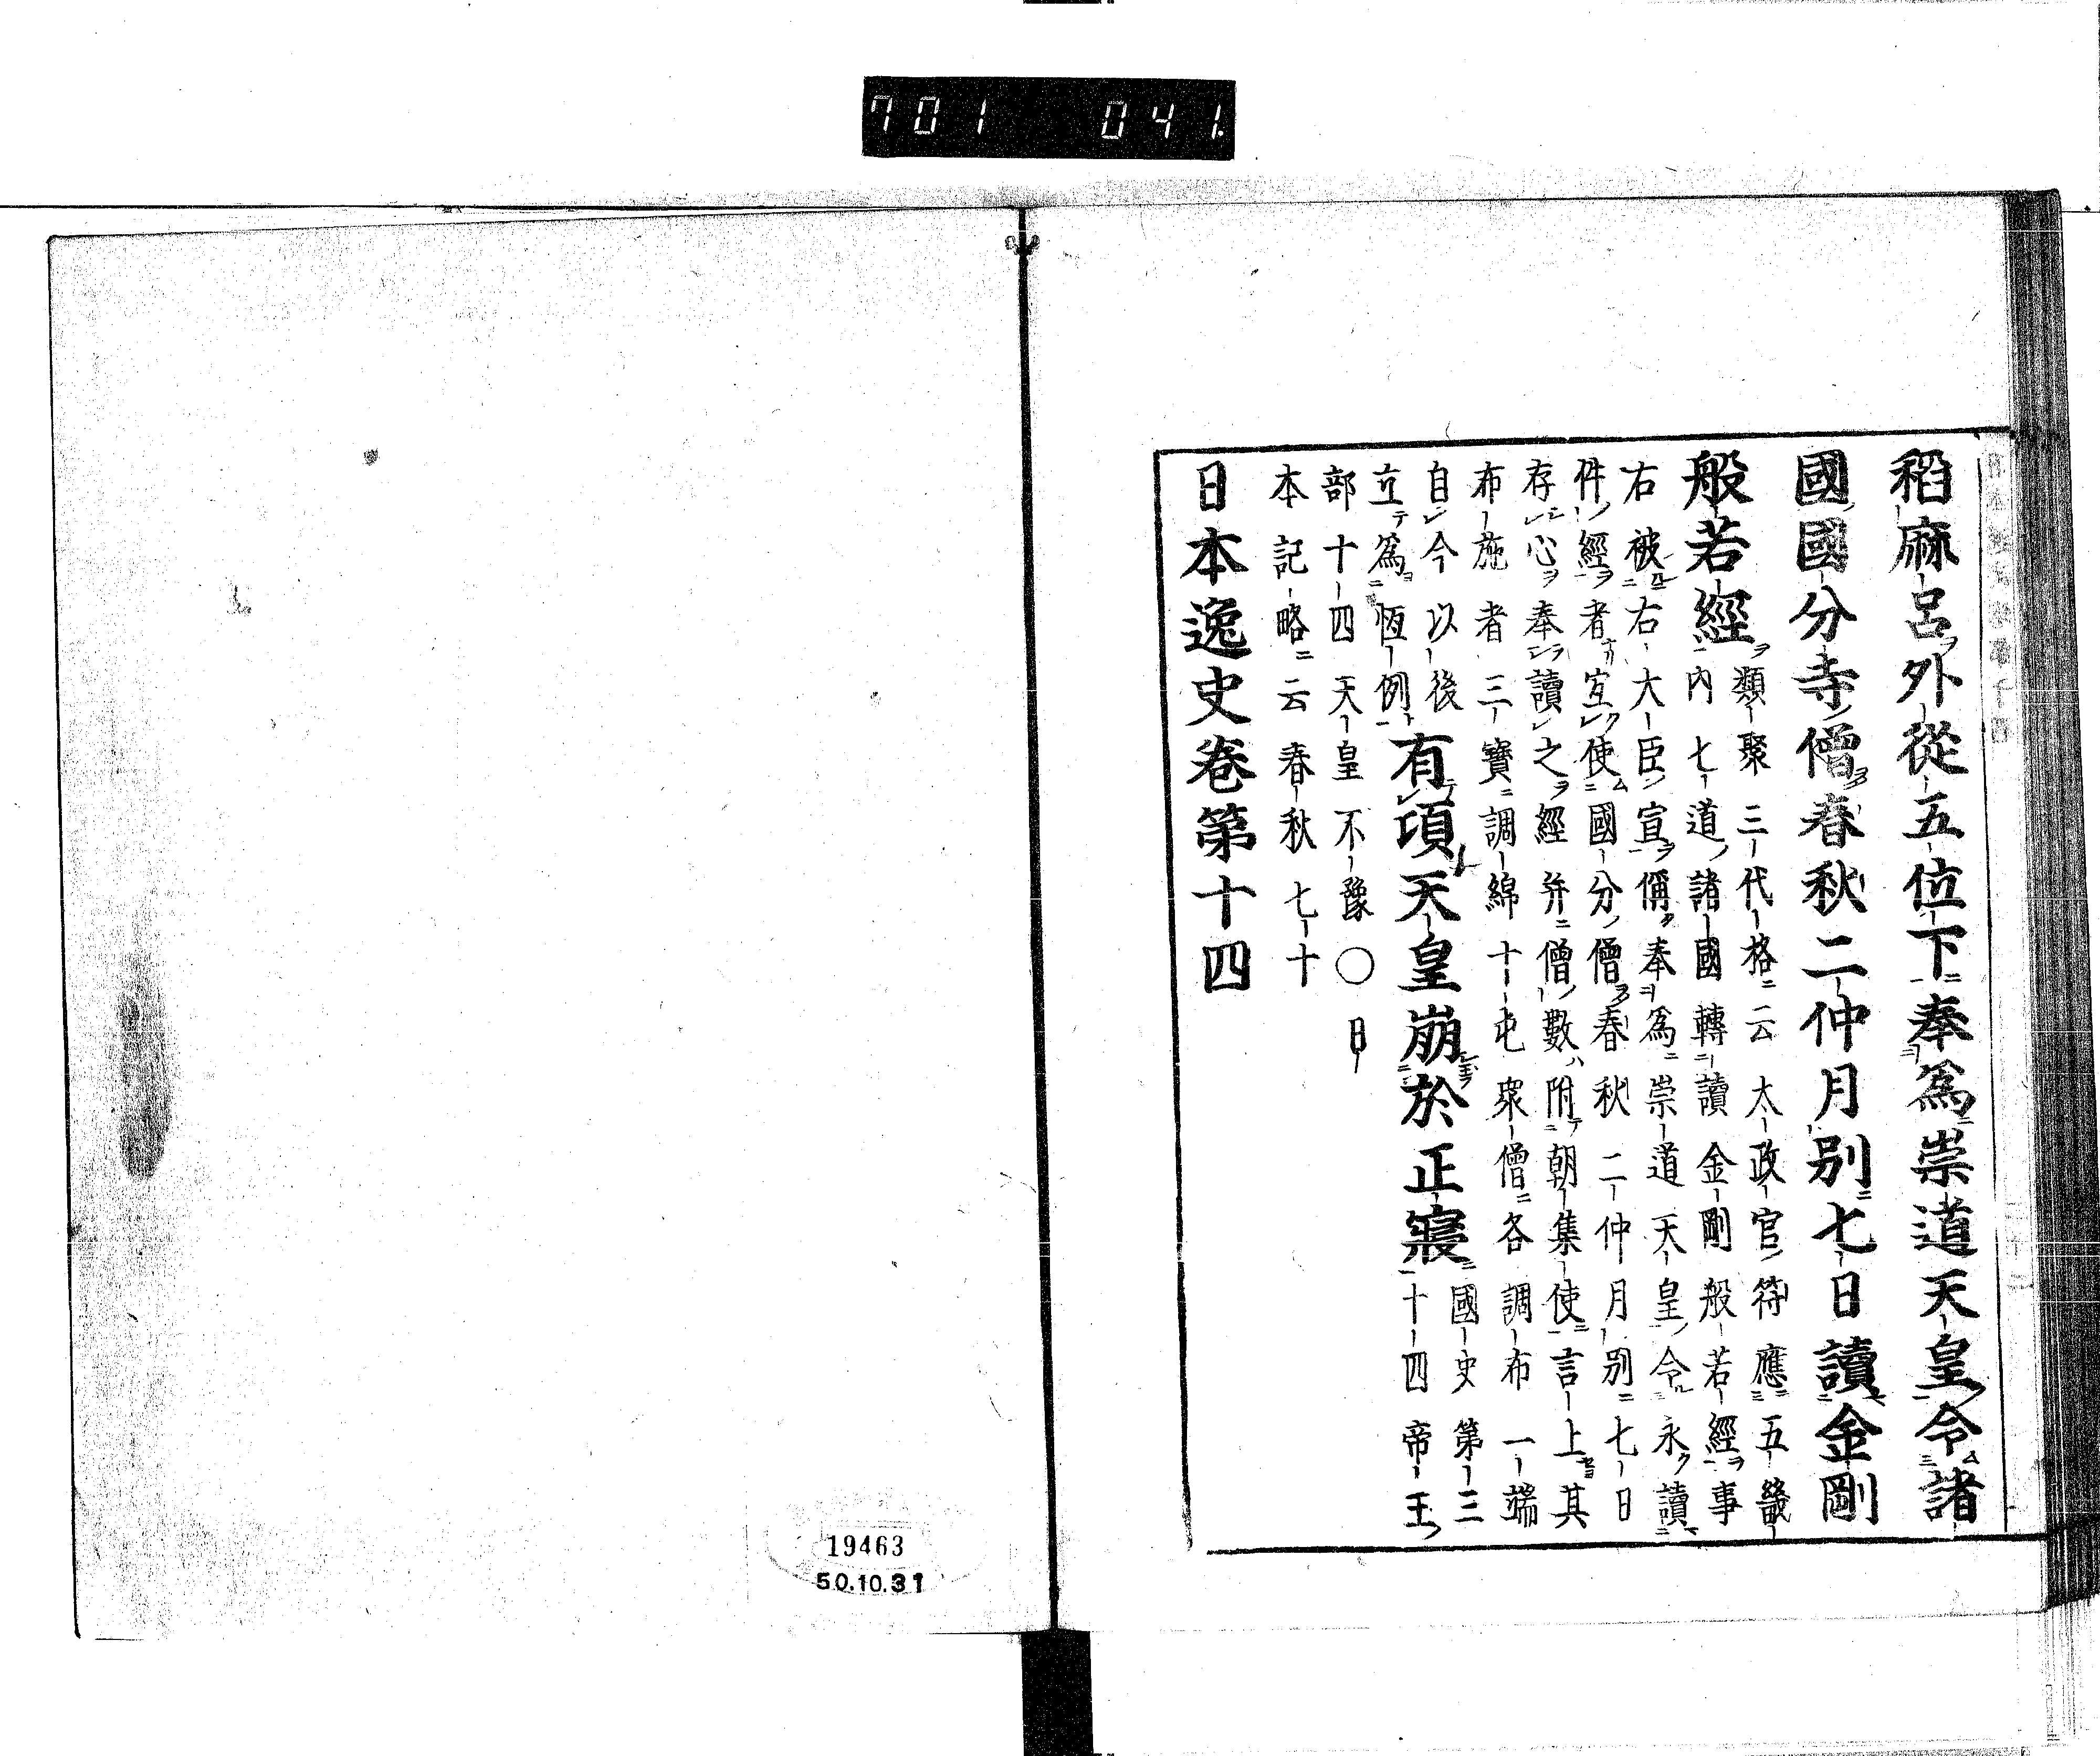 701 041
稻麻呂外從五位下奉爲崇道天皇令諸
國國分寺僧春秋二仲月別七日讀金剛
般若經
類聚三代格云太政官符應五畿
內七道諸國轉讀金剛般若經事
右被右大臣宣偁奉爲崇道天皇令永讀
件經者宜使國分僧春秋二仲月別七日
存心奉讀之經并僧數附朝集使言上其
布施者三寶調綿十屯衆僧各調布一端
自今以後
立爲恆例
有頃天皇崩於正寢
國史第三
十四帝王
部十四天皇不豫〇日
本記略云春秋七十
日本逸史卷第十四
19463
50.10.31